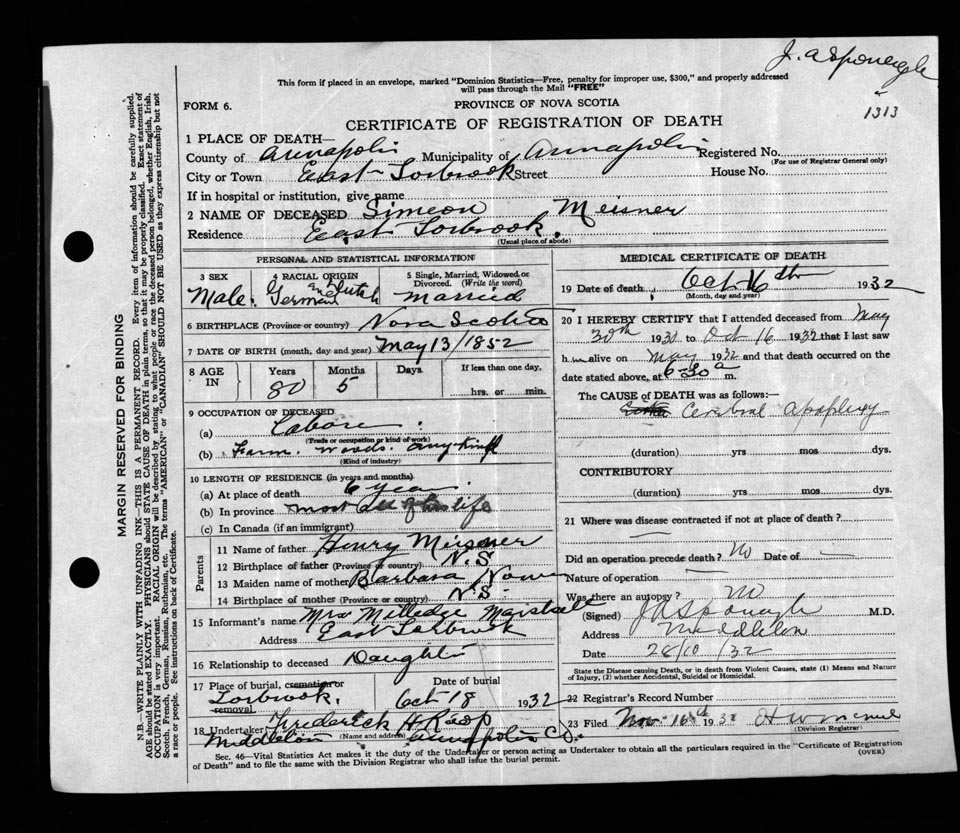 J. A Sponagle
This form if placed in an envelope, marked "Dominion Statistics—Free, penalty for improper use, $300," and properly addressed
will pass through the Mail "FREE"
1313
FORM 6.
PROVINCE OF NOVA SCOTIA
CERTIFICATE OF REGISTRATION OF DEATH
1 PLACE OF DEATH—
County of Annapolis Municipality of Annapolis Registered No.
(For use of Registrar General only)
City or Town East Torbrook Street House No.
If in hospital or institution, give name
2 NAME OF DECEASED Simeon Meisner
Residence East Torbrook.
(Usual place of abode)
PERSONAL AND STATISTICAL INFORMATION
3 SEX
Male.
4 RACIAL ORIGIN
German Dutch
5 Single, Married, Widowed or
Divorced. (Write the word)
married
6 BIRTHPLACE (Province or country) Nova Scotia
7 DATE OF BIRTH (month, day and year) May 13/1852
8 AGE IN
Years 80 Months 5 Days
If less than one day,
hrs. or min.
9 OCCUPATION OF DECEASED
(a) Labore
(Trade or occupation or kind of work)
(b) Farm. Woods.
(Kind of industry)
10 LENGTH OF RESIDENCE (in years and months)
(a) At place of death 6 years
(b) In province most all of his life
(c) In Canada (if an immigrant)
Parents
11 Name of father Henry Meisner
12 Birthplace of father (Province or country) N.S.
13 Maiden name of mother Barbara
14 Birthplace of mother (Province or country) N.S.
15 Informant's name Mrs Milledge Marshall
Address East Torbrook
16 Relationship to deceased Daughter
17 Place of burial, cremation or
removal
Torbrook.
Date of burial
Oct 18 1932
18 Undertaker Frederick H Roop
(Name and address)
Middleton Annapolis Co.
MEDICAL CERTIFICATE OF DEATH
19 Date of death Oct 16th 1932
(Month, day and year)
20 I HEREBY CERTIFY that I attended deceased from May
30th 1930 to Oct 16 1932 that I last saw
him alive on May 1932 and that death occurred on the
date stated above, at 6-30 a m.
The CAUSE of DEATH was as follows:—
Cerebral apoplexy
(duration) yrs mos dys.
CONTRIBUTORY
(duration) yrs mos dys.
21 Where was disease contracted if not at place of death?
Did an operation precede death? No Date of
Nature of operation
Was there an autopsy? No
(Signed) J A Sponagle M.D.
Address Middleton
Date 28/10/32
State the Disease causing Death, or in death from Violent Causes, state (1) Means and Nature
of Injury, (2) whether Accidental, Suicidal or Homicidal.
22 Registrar's Record Number
23 Filed Nov 16th 1932 H W
(Division Registrar)
Sec. 46—Vital Statistics Act makes it the duty of the Undertaker or person acting as Undertaker to obtain all the particulars required in the "Certificate of Registration
of Death" and to file the same with the Division Registrar who shall issue the burial permit.
(OVER)
MARGIN RESERVED FOR BINDING
N.B.—WRITE PLAINLY WITH UNFADING INK—THIS IS A PERMANENT RECORD. Every item of information should be carefully supplied.
AGE should be stated EXACTLY. PHYSICIANS should STATE CAUSE OF DEATH in plain terms, so that it may be properly classified. Exact statement of
OCCUPATION is very important. RACIAL ORIGIN will be described by stating to what people or race the deceased person belonged, whether English, Irish,
Scotch, French, German, Russian, Ruthenian, etc. The terms "AMERICAN" or "CANADIAN" SHOULD NOT BE USED as they express citizenship but not
a race or people. See instructions on back of Certificate.